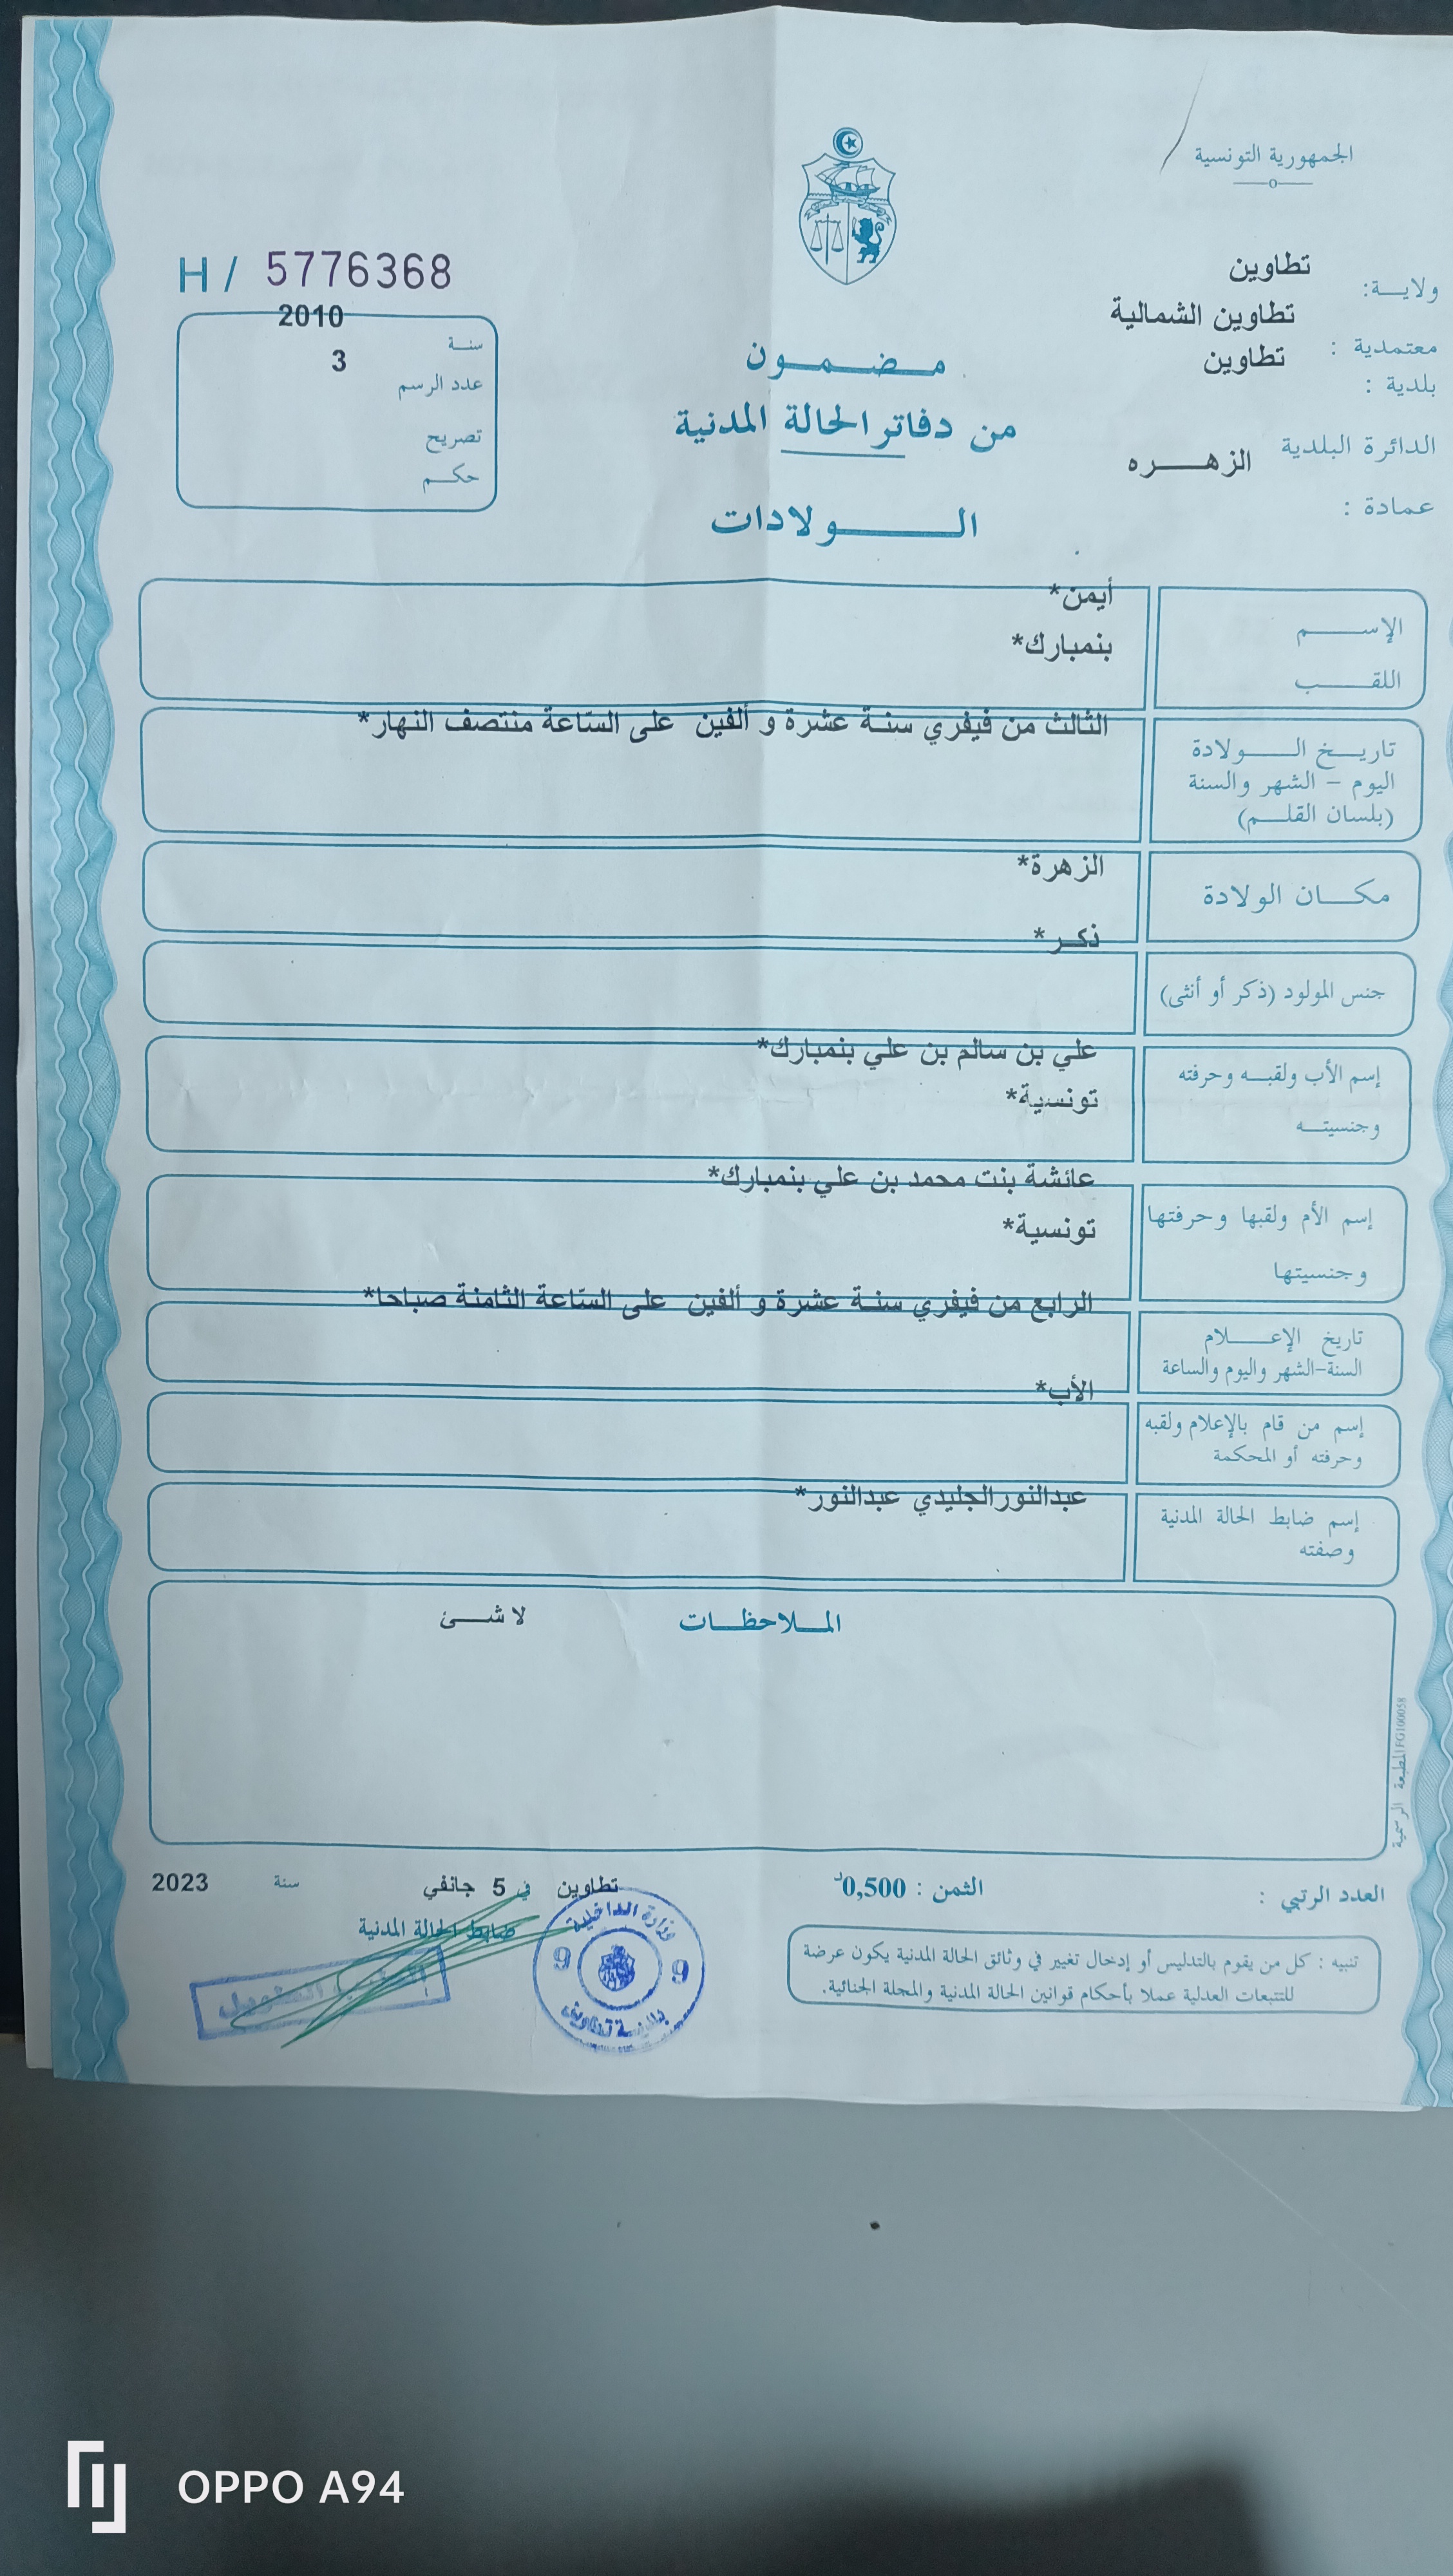 الجمهورية التونسية
ولايــة: تطاوين
معتمدية : تطاوين الشمالية
بلدية : تطاوين
الدائرة البلدية الزهـــــره
عمادة :
H / 5776368
سنــة 2010
عدد الرسم 3
تصريح
حكــم
مــضــمــون
من دفاتر الحالة المدنية
الــــــولادات
الإســــــم أيمن*
اللقــــــب بنمبارك*
تاريــخ الـــــولادة
اليوم – الشهر والسنة
(بلسان القلــم)
الثالث من فيفري سنـة عشرة و ألفين على السّاعة منتصف النهار*
مكــــان الولادة الزهرة*
جنس المولود (ذكر أو أنثى) ذكـر*
إسم الأب ولقبــه وحرفته
وجنسيتــه
علي بن سالم بن علي بنمبارك*
تونسية*
إسم الأم ولقبها وحرفتها
وجنسيتها
عائشة بنت محمد بن علي بنمبارك*
تونسية*
تاريخ الإعــــلام
السنة-الشهر واليوم والساعة
الرابع من فيفري سنـة عشرة و ألفين على السّاعة الثامنة صباحا*
إسم من قام بالإعلام ولقبه
وحرفته أو المحكمة
الأب*
إسم ضابط الحالة المدنية
وصفته
عبدالنورالجليدي عبدالنور*
المــلاحظــات لا شـــئ
المطبعة الرسمية FG100058
العدد الرتبي :
الثمن : 0,500د
تطاوين في 5 جانفي سنة 2023
ضابط الحالة المدنية
وزارة الداخلية
9 9
بلديـــة تطاوين
تنبيه : كل من يقوم بالتدليس أو إدخال تغيير في وثائق الحالة المدنية يكون عرضة
للتتبعات العدلية عملا بأحكام قوانين الحالة المدنية والمجلة الجنائية.
OPPO A94